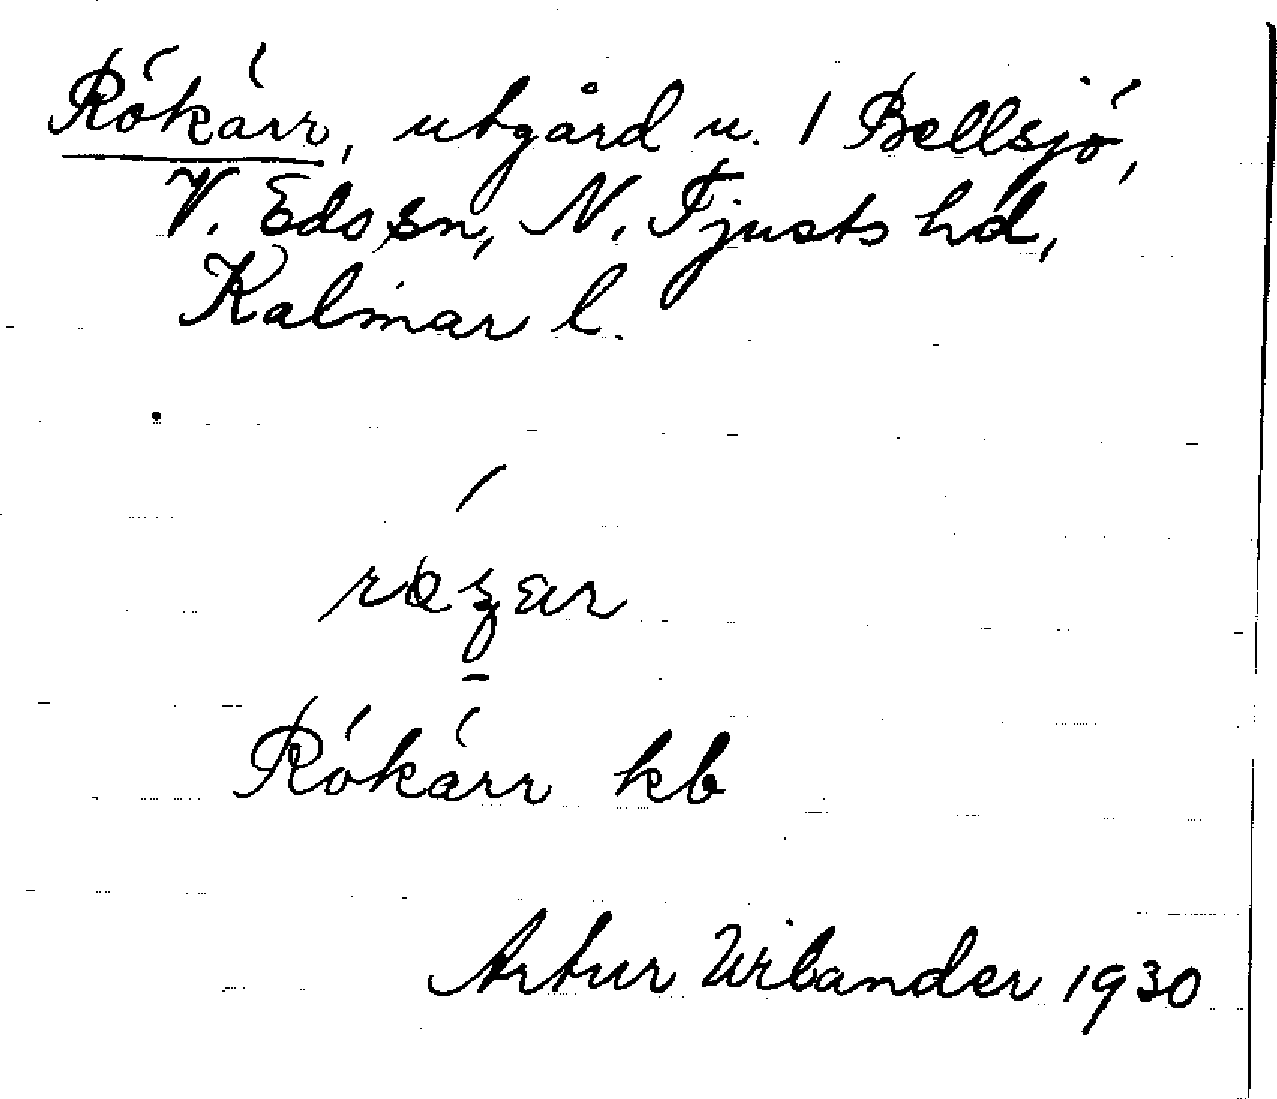 Rökärr, utgård u. 1 Bellsjö,
V. Eds sn, N. Tjusts hd,
Kalmar l.
Rökärr kb
Artur Wilander 1930